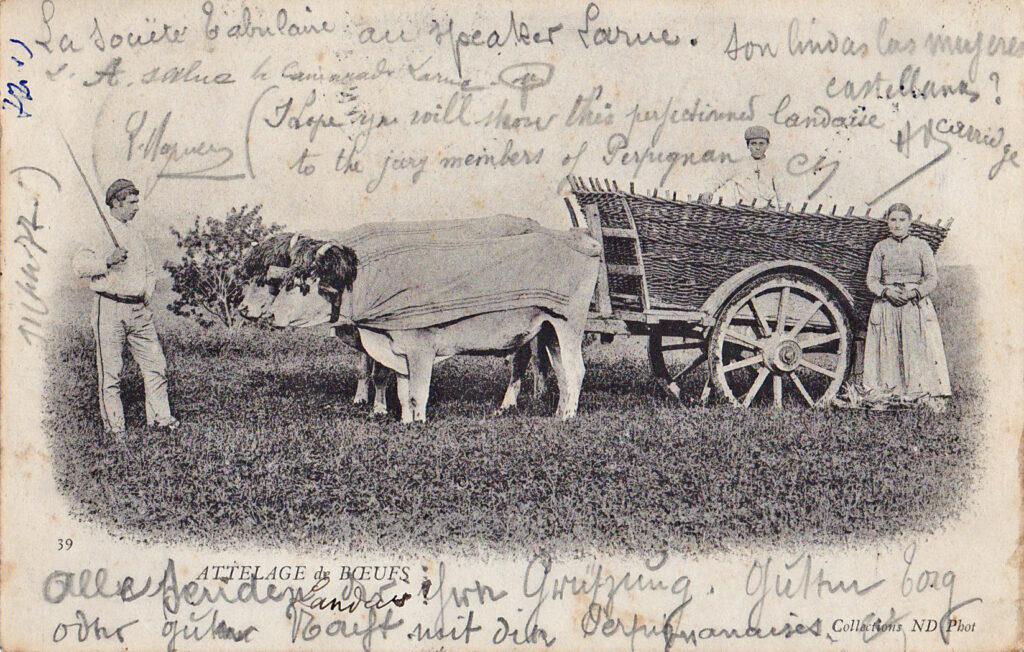 La Société Tabulaire au speaker Larue.
Son lindas las mujeres
castellanas?
A. salue le camarade Larue
(I hope you will show this perfectionned landaise
carridge
to the jury members of Perpignan
39
ATTELAGE de BŒUFS
Landais
Alle senden ihre Grützung. Guten Tag
oder guten Nacht mit den Perpignanaises.
Collections ND Phot